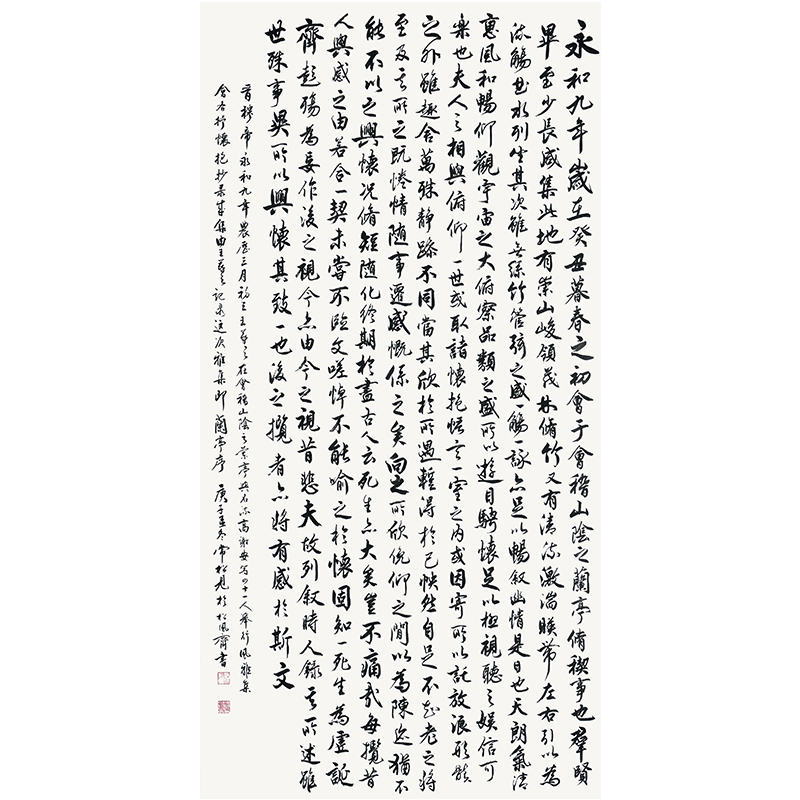 永和九年歲在癸丑暮春之初會于會稽山陰之蘭亭脩禊事也群賢
畢至少長咸集此地有崇山峻領茂林脩竹又有清流激湍暎帶左右引以為
流觴曲水列坐其次雖無絲竹管弦之盛一觴一詠亦足以暢叙幽情是日也天朗氣清
惠風和暢仰觀宇宙之大俯察品類之盛所以遊目騁懷足以極視聽之娛信可
樂也夫人之相與俯仰一世或取諸懷抱悟言一室之内或因寄所以託放浪形骸
之外雖趣舍萬殊靜躁不同當其欣於所遇輕得於己怏然自足不知老之將
至及其所之既惓情随事遷感慨係之矣向之所欣俛仰之間以為陳迹猶不
能不以之興懷况脩短随化終期於盡古人云死生亦大矣豈不痛哉每攬昔
人興感之由若合一契未嘗不臨文嗟悼不能喻之於懷固知一死生為虛誕
齊彭殤為妄作後之視今亦由今之視昔悲夫故列叙時人錄其所述雖
世殊事異所以興懷其致一也後之攬者亦將有感於斯文
晉穆帝永和九年農歷三月初三王羲之在會稽山陰之蘭亭與名流高謝安等四十一人舉行風雅集
會各抒懷抱抄录成集由王羲之記录這次雅集即蘭亭序 庚子孟冬常松見於松風齋書